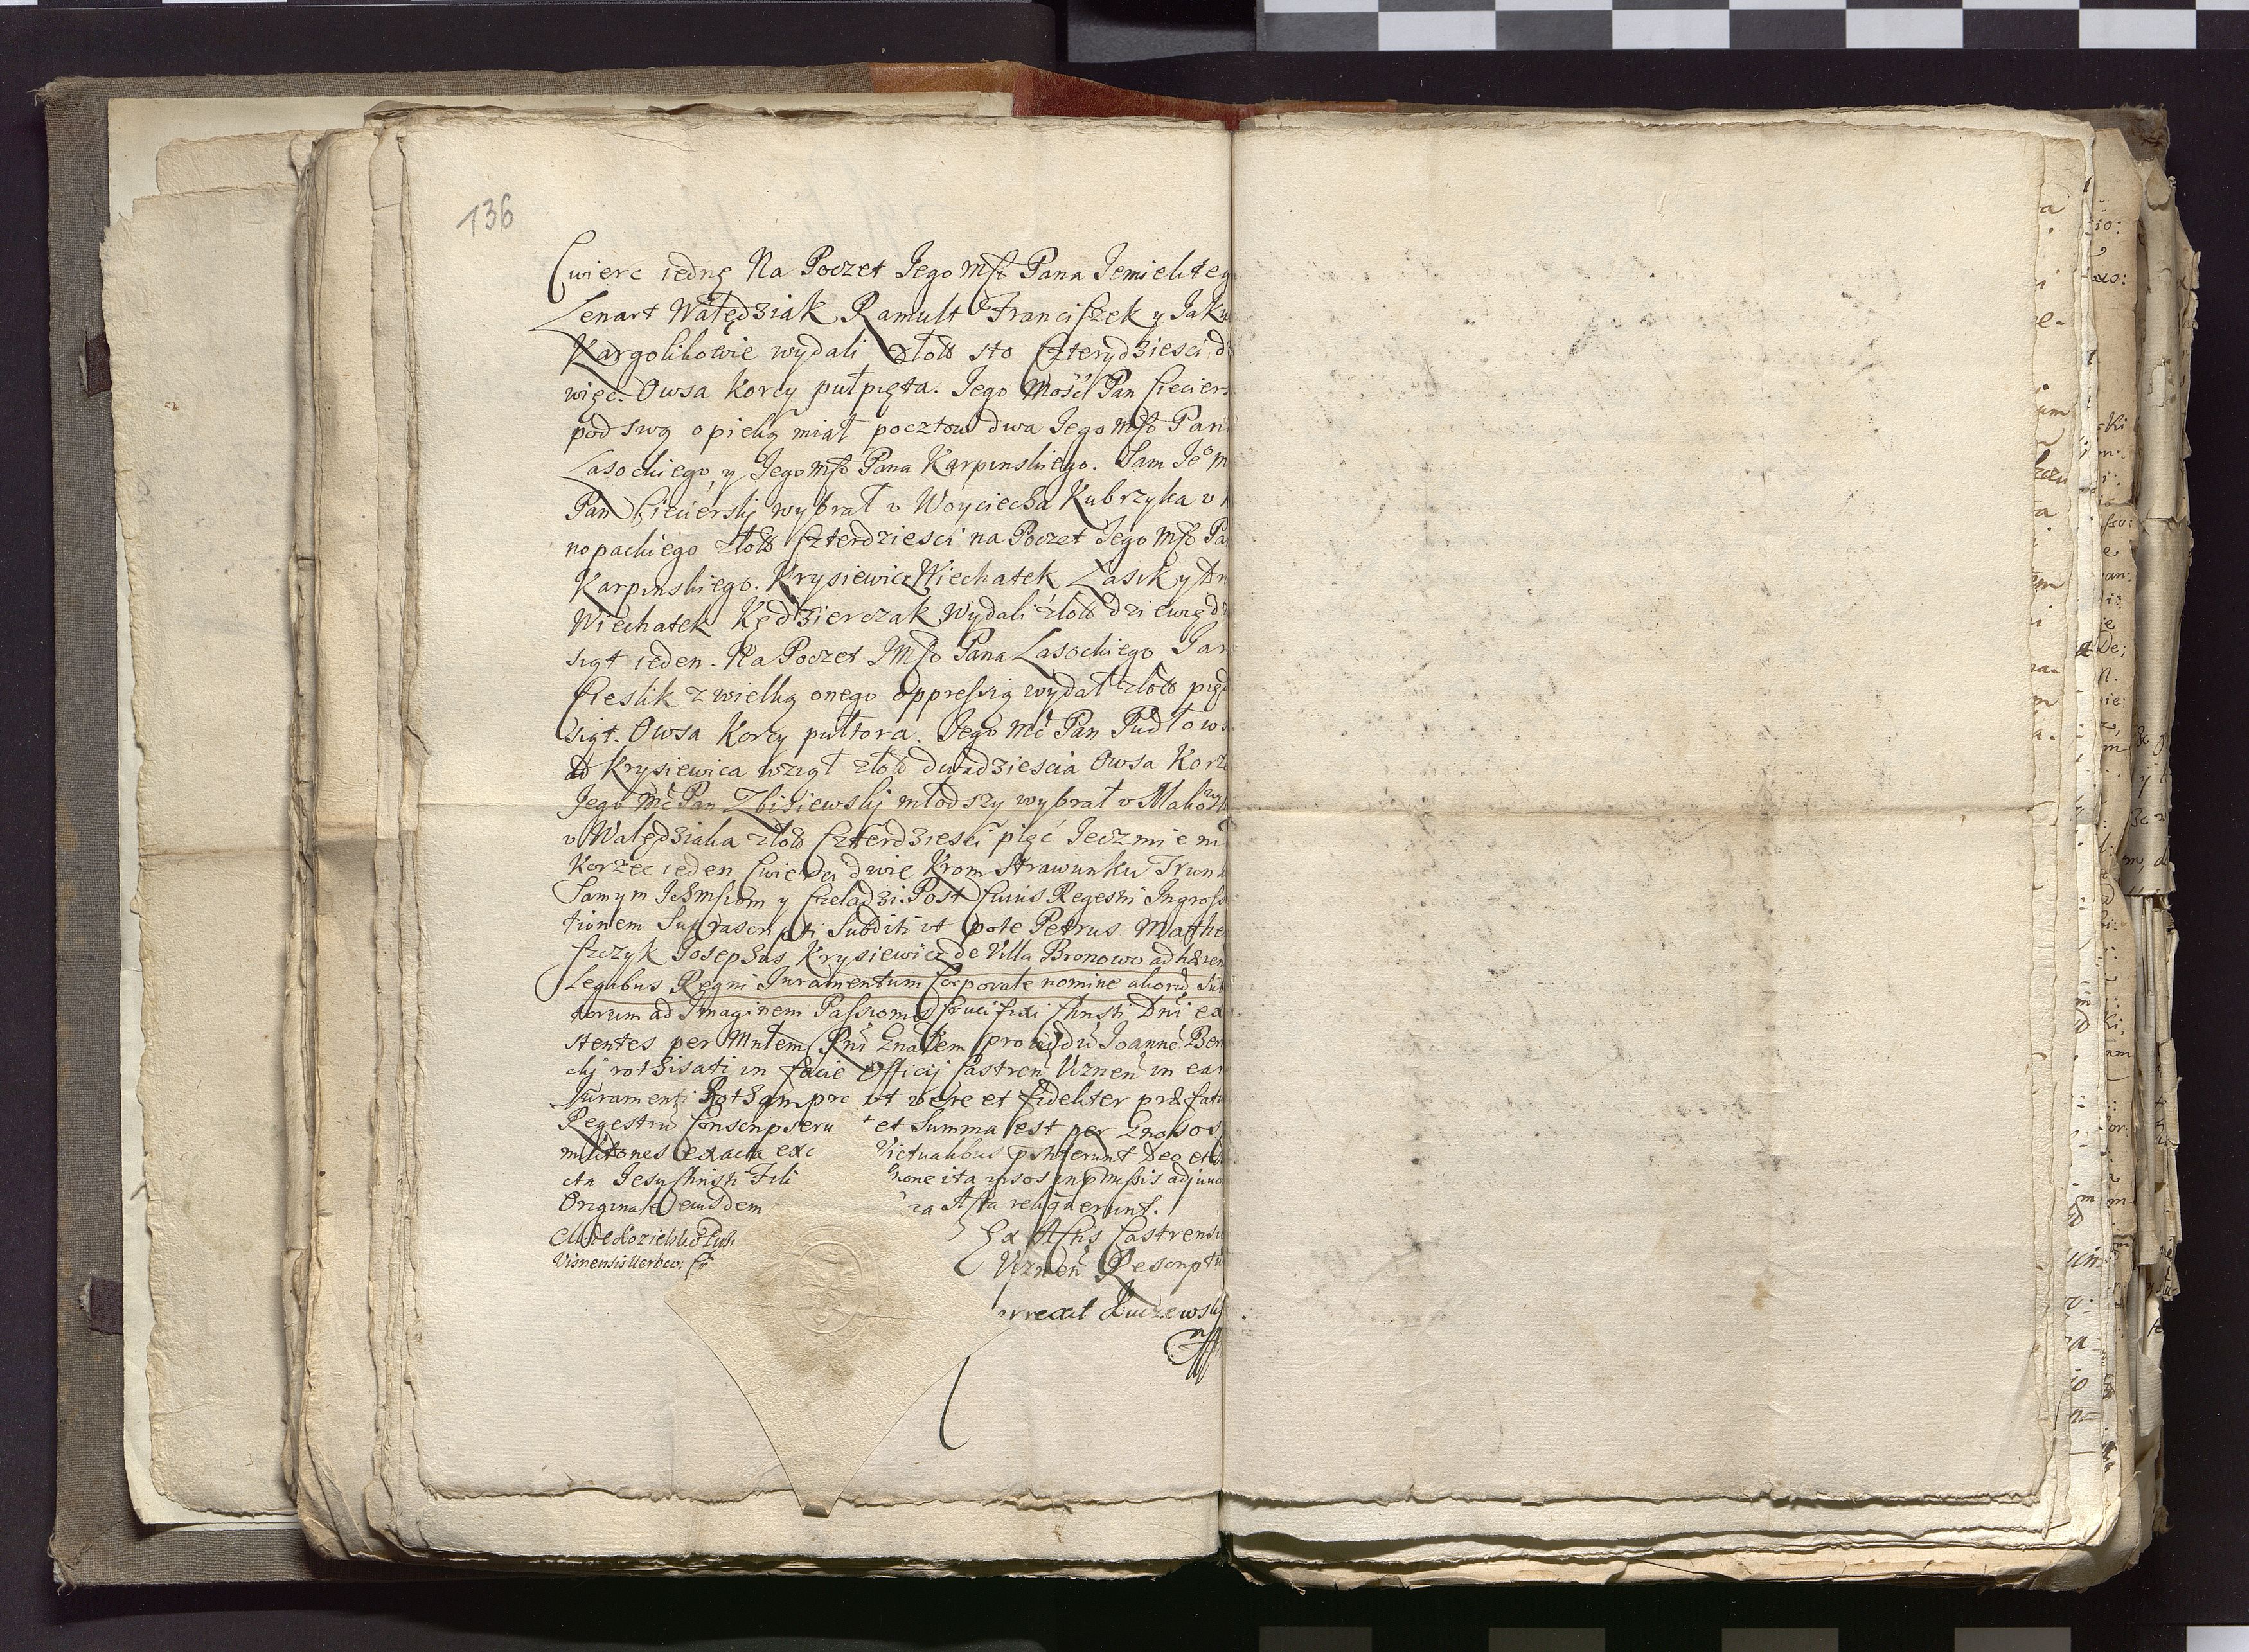 136
Cwierc iednę Na Poczet Jego Mść Pana Jemieliteg
Lenart Wałędziak Ramult Franciszek y Jaku
Kargolikowie wydali złott sto Czterydziesci d
więc. Owsa Korcy pułpięta. Jego Mośći Pan Ciecier
pod swą opieką miał pocztow dwa Jego Mść Pan
Lasockiego, y Jego Mść Pana Karpinskiego. Sam Jeo M
Pan Ciecierskj wybrał v Woyciecha Kubrzyka v
nopackiego złott Czterdziesci na Poczet Jego Mść Pa
Karpinskiego. Krysiewicz Wiechatek Lasik y
Wiechatek Kędzierczak Wydali złott dziewięd
siąt ieden. Na Poczet JMść Pana Lasockiego Jan
Cieslik z wielką onego oppressią wydał złott pięd
siąt. Owsa Korcy pułtora. Jego Mć Pan Pudłows
od Krysiewica wziął złott dwadziescia Owsa Korc
Jego Mć Pan Zbisiewskj młodszy wybrał v
v Wałędziaka złott Czterdziesci pięć Jeczmieni
Korzec ieden Cwierci dwie Krom Strawunku Trun
Samym Ichmsciom y Czeladzi. Post Cuius Regestri Ingross
tionem Suprascripti Subditi vt pote Petrus Mathe
szczyk Josephus Krysiewicz de Villa Bronowo adhæren
Legibus Regni Juramentum Corporale nomine aliorũ Sub
torum ad Imaginem Passionis Crucifixi Christi Dni ex
stentes per Mnłem Rni Gnałem providũ Joannẽ Ben
ckj rothisati in facie Officij Castreñ Vizneñ in ean
Juramenti Rotham pre vt vere et fideliter præfatu
Regestrũ Conscripseru t et Summa est per Gnosos
milites exacta exc Victualibus pstiterunt Deo et
cta Jesu Christi Fili none ita ipsos in pmissis adjuu
Originale eiusdem ra Acta reliquerunt.
M. de Kozielsko Puz
Visnensis
Ex Actis Castrensi
Vizneñ Rescriptũ
orrexit Łuczewskj